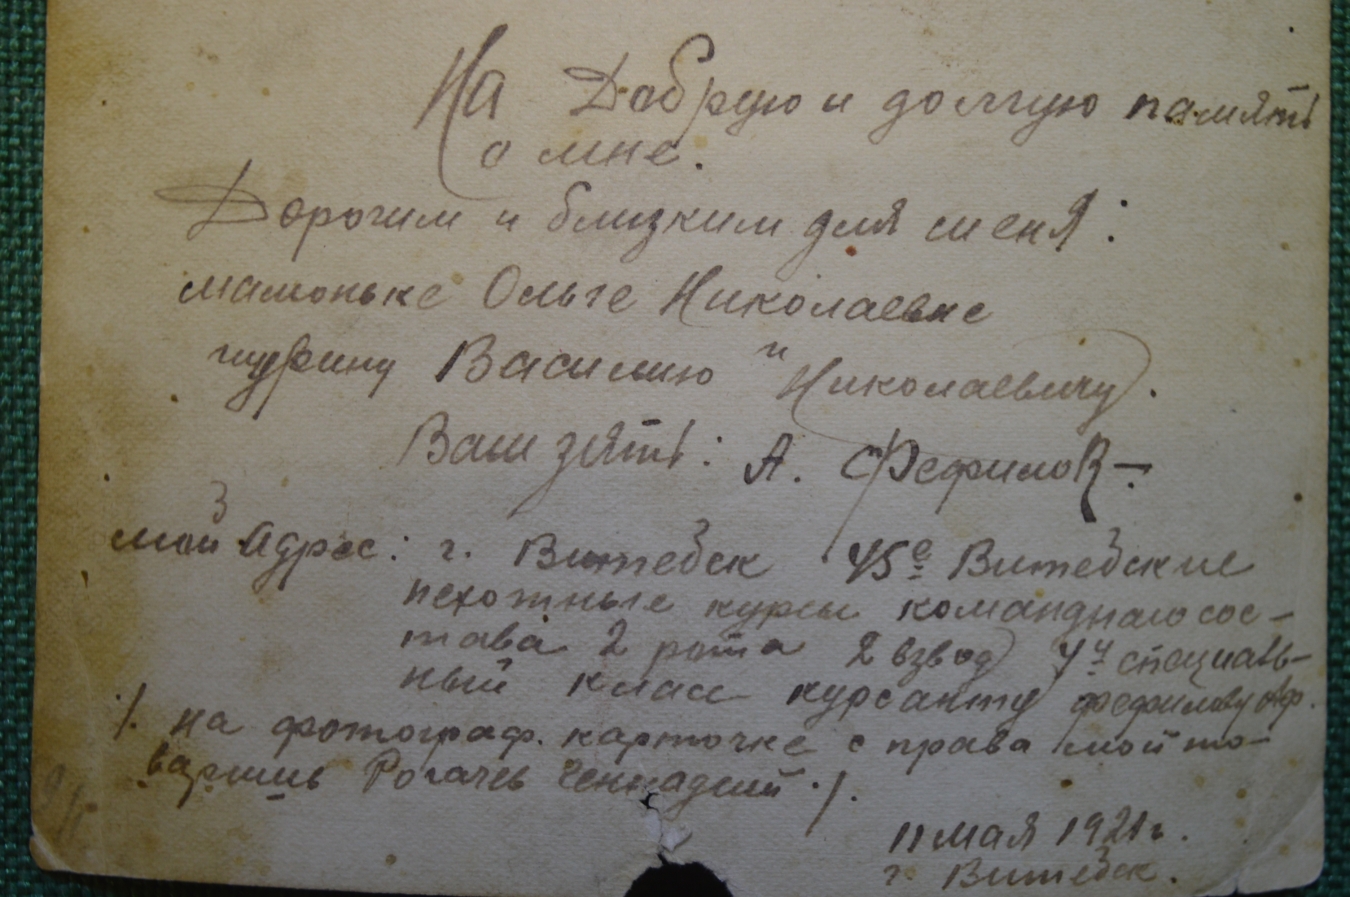 На Добрую и долгую память
о мне.
Дорогим и близким для меня:
мамоньке Ольге Николаевне
и
шурину Василию Николаевичу.
Ваш зять: А. Фефилов
мой адрес: г. Витебск 45е Витебские
пехотные курсы команднаго сос-
тава 2 рота 2 взвод специаль-
ный класс курсанту Фефилову
/. на фотограф. карточке с права мой то-
варищь Рогачев Геннадий ./.
11 мая 1921 г.
г. Витебск.